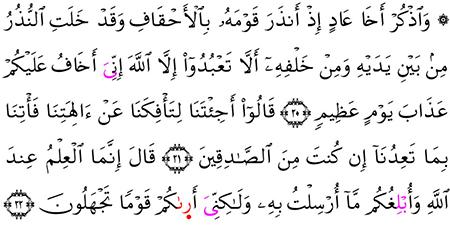 ۞ وَٱذۡكُرۡ أَخَا عَادٍ إِذۡ أَنذَرَ قَوۡمَهُۥ بِٱلۡأَحۡقَافِ وَقَدۡ خَلَتِ ٱلنُّذُرُ
مِنۢ بَيۡنِ يَدَيۡهِ وَمِنۡ خَلۡفِهِۦٓ أَلَّا تَعۡبُدُوٓاْ إِلَّا ٱللَّهَ إِنِّيَ أَخَافُ عَلَيۡكُمۡ
عَذَابَ يَوۡمٍ عَظِيمٖ ٢٠ قَالُوٓاْ أَجِئۡتَنَا لِتَأۡفِكَنَا عَنۡ ءَالِهَتِنَا فَأۡتِنَا
بِمَا تَعِدُنَآ إِن كُنتَ مِنَ ٱلصَّٰدِقِينَ ٢١ قَالَ إِنَّمَا ٱلۡعِلۡمُ عِندَ
ٱللَّهِ وَأُبۡلِغُكُم مَّآ أُرۡسِلۡتُ بِهِۦ وَلَٰكِنِّيَ أَرىٰكُمۡ قَوۡمٗا تَجۡهَلُونَ ٢٢